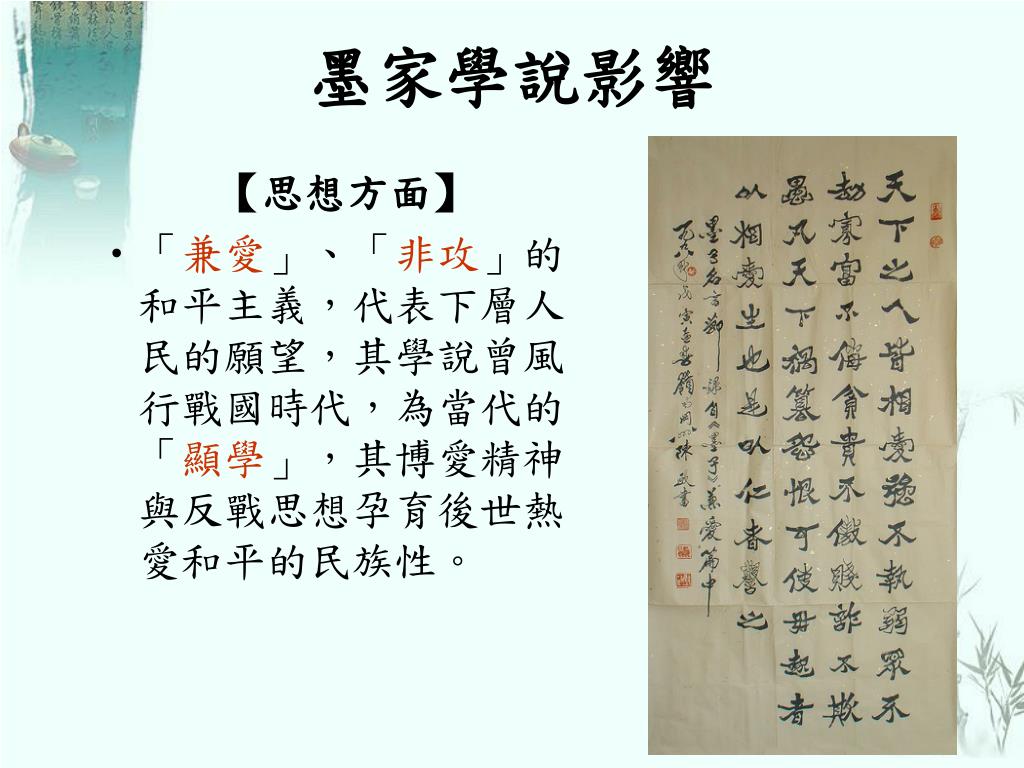 墨家學說影響
【思想方面】
•「兼愛」、「非攻」的
和平主義，代表下層人
民的願望，其學說曾風
行戰國時代，為當代的
「顯學」，其博愛精神
與反戰思想孕育後世熱
愛和平的民族性。
天下之人皆相愛強不執弱眾不
劫寡富不侮貧貴不傲賤詐不欺
愚凡天下禍篡怨恨可使毋起者
以相愛生也是以仁者譽之
墨子名言 錄自《墨子》兼愛篇中